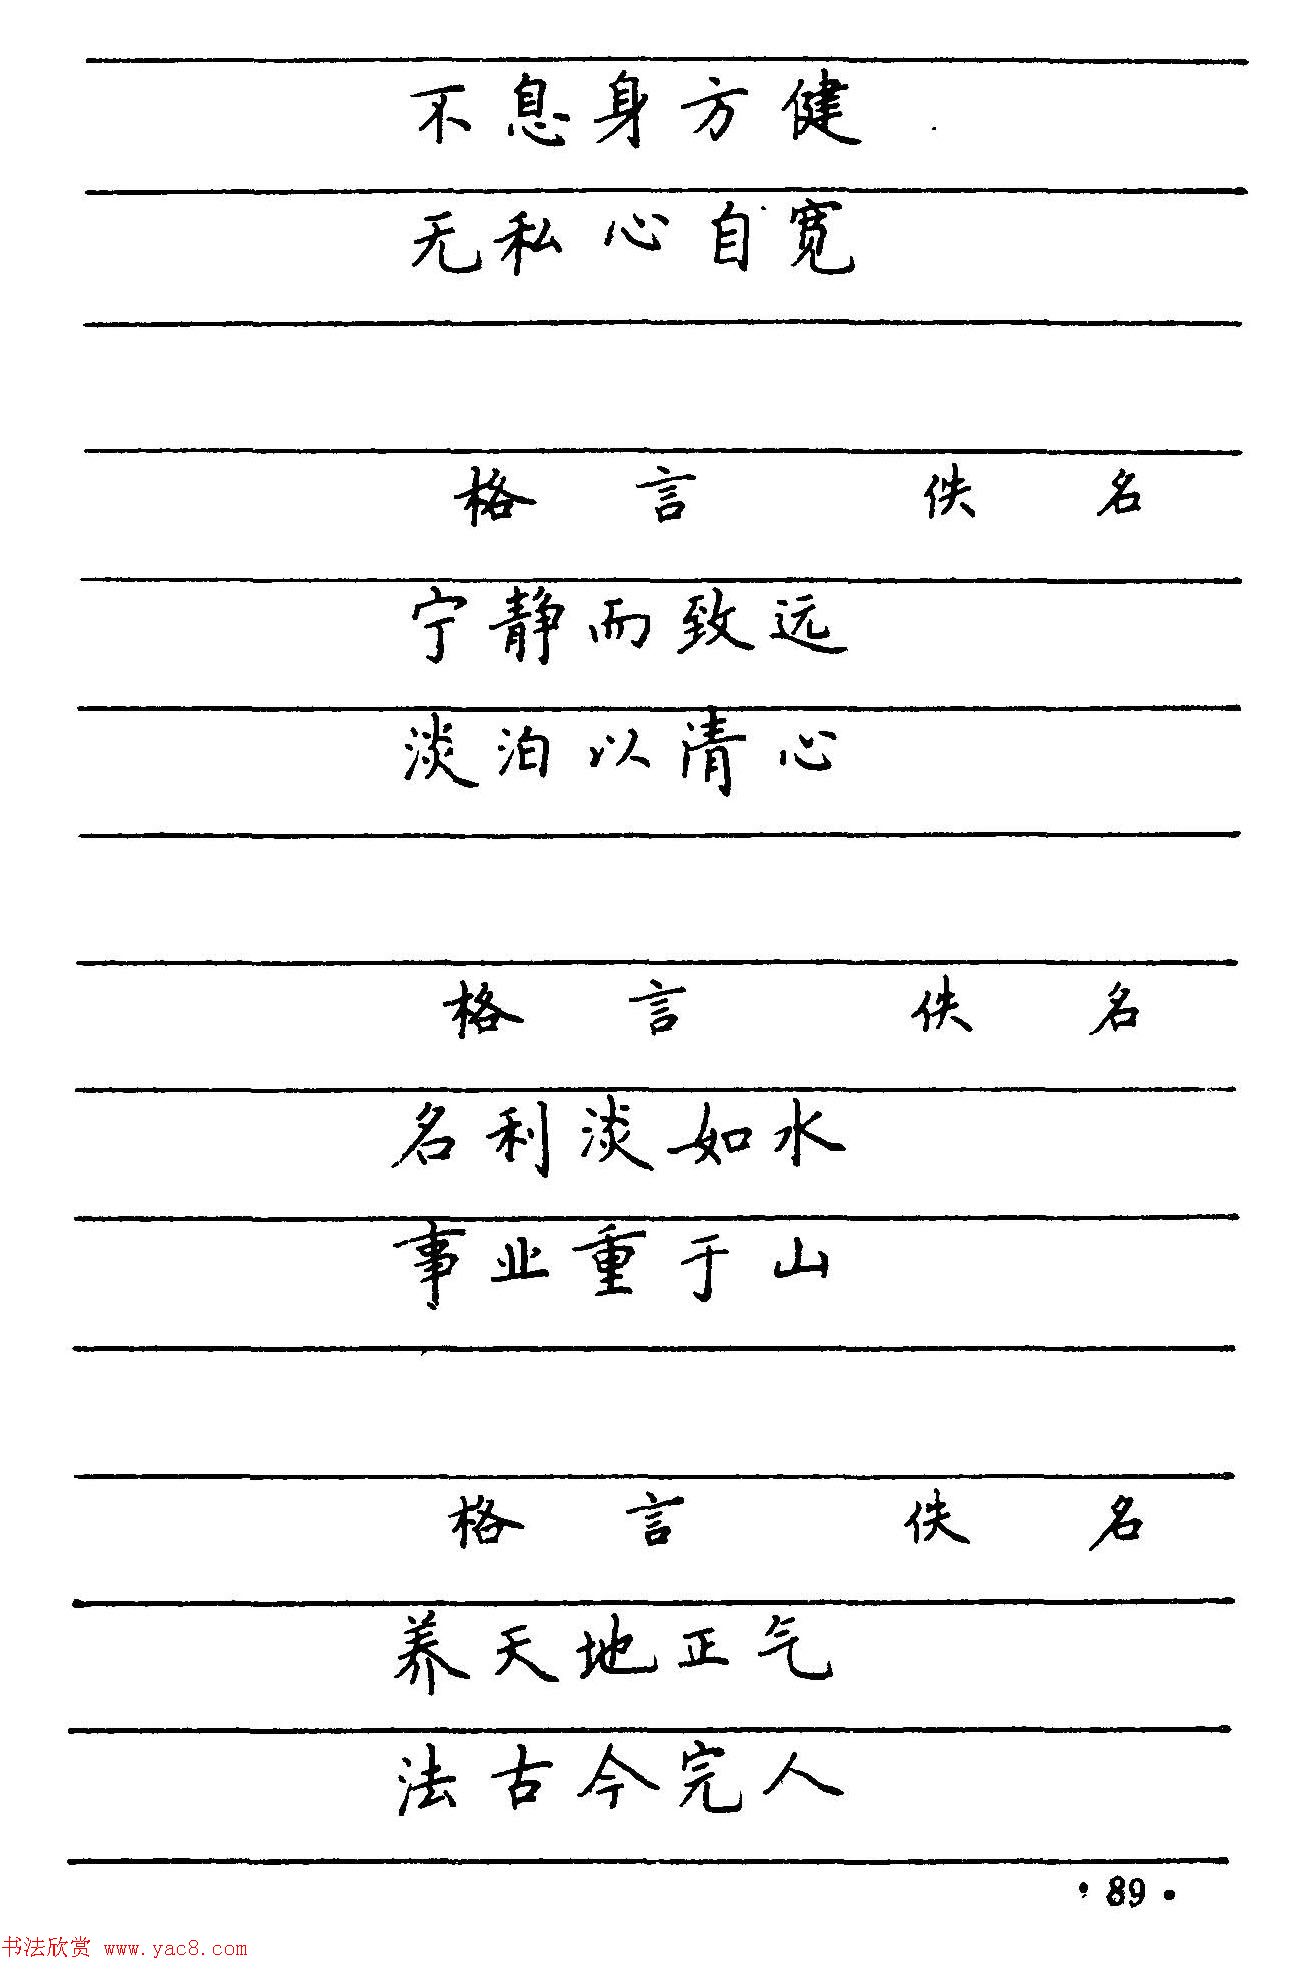 不息身方健
无私心自宽
格 言 佚 名
宁静而致远
淡泊以清心
格 言 佚 名
名利淡如水
事业重于山
格 言 佚 名
养天地正气
法古今完人
·89·
书法欣赏 www.yac8.com